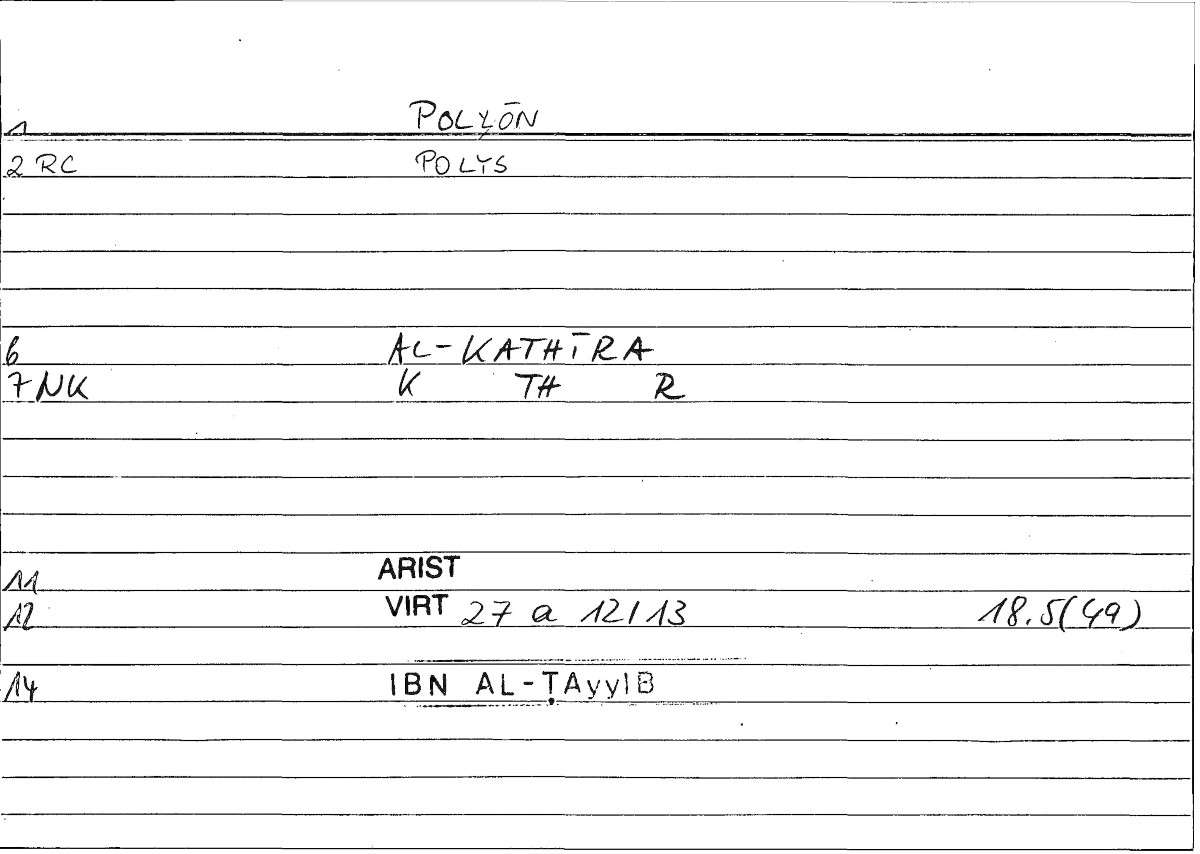 1 POLỴŌN
2 RC POLYS
6 AL-KATHĪRA
7 NK K TH R
11 ARIST
12 VIRT 27 a 12/13 18.5(49)
14 IBN AL-ṬAyyIB